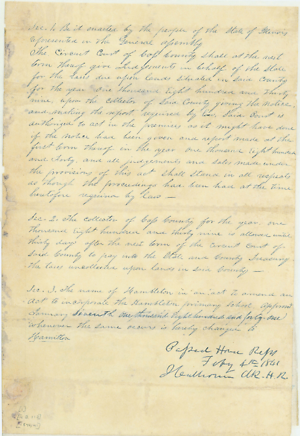 Sec. 1. Be it enacted by the people of the State of Illinois
represented in the General Assembly
The Circuit Court of Cass County shall at the next
term thereof give judgments in behalf of the State
for the taxes due upon lands situated in said County
for the year one thousand eight hundred and thirty
nine, upon the collector of said County giving the notice
and making the report required by law. Said Court is
authorized to act in the premises as it might have done
if the notice had been given and report made at the
first term thereof in the year one thousand eight hundred
and forty, and all judgements and sales made under
the provisions of this act shall stand in all respects
as though the proceedings had been had at the time
heretofore required by law —
Sec. 2. The collector of Cass County for the year one
thousand eight hundred and thirty nine is allowed
thirty days after the next term of the circuit court of
said County to pay into the State and County Treasury
the taxes uncollected upon lands in said County —
Sec. 3. The name of Hamilton in an act to amend an
act to incorporate the Hamilton primary school, approved
January seventh one thousand eight hundred and forty one
wherever the same occurs is hereby changed to
Hamilton
Passed House Reps
Feby 4th 1841
J Calhoun Clk. H. R.